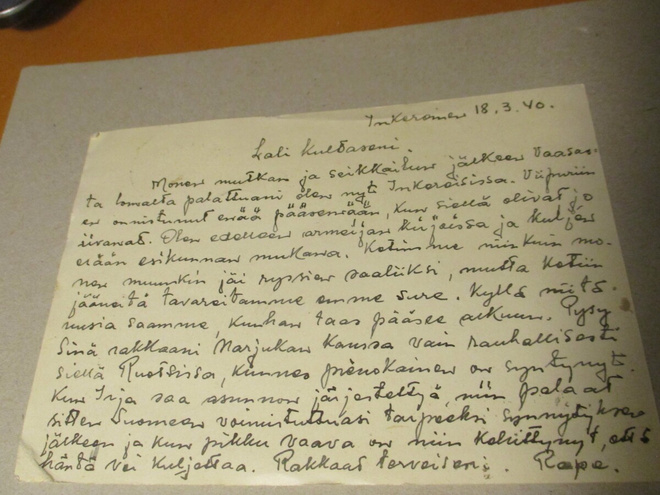 Inkeroinen 18.3.40.
Lali Kultaseni.
Monen mutkan ja seikkailun jälkeen Vaasas-
ta lomalta palattuani olen nyt Inkeroisissa. Viipuriin
en onnistunut enää pääsemään, kun siellä olivat jo
iivanat. Olen edelleen armeijan kirjoissa ja kuljen
erään esikunnan mukana. Kotimme niinkuin mo-
nen muunkin jäi ryssien saaliiksi, mutta kotiin
jääneitä tavaroitamme emme sure. Kyllä niitä
uusia saamme, kunhan taas pääsee alkuun. Pysy
Sinä rakkaani Marjukan kanssa vain rauhallisesti
siellä Ruotsissa, kunnes pienokainen on syntynyt.
Kun Irja saa asunnon järjestettyä, niin palaat
sitten Suomeen voimistuttuasi tarpeeksi synnytyksen
jälkeen ja kun pikku vaava on niin kehittynyt, että
häntä voi kuljettaa. Rakkaat terveiseni. Rape.